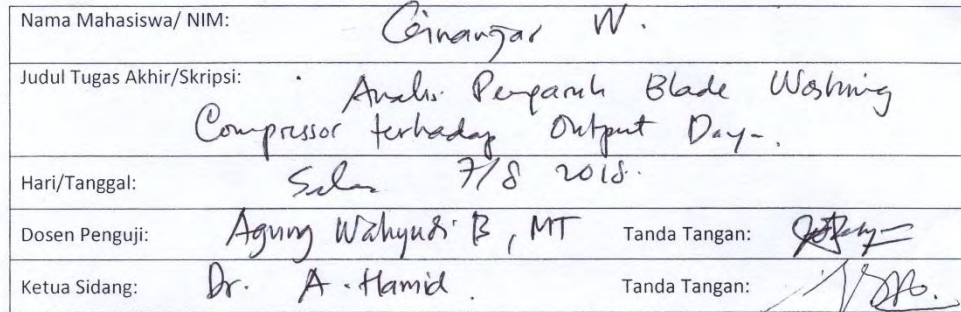 Nama Mahasiswa/ NIM: Ginanjar W.
Judul Tugas Akhir/Skripsi: Analis. Pengaruh Blade Washing
Compressor terhadap Output Day-.
Hari/Tanggal: 7/8 2018.
Dosen Penguji: Agung Wahyudi B, MT Tanda Tangan:
Ketua Sidang: Dr. A. Hamid. Tanda Tangan: